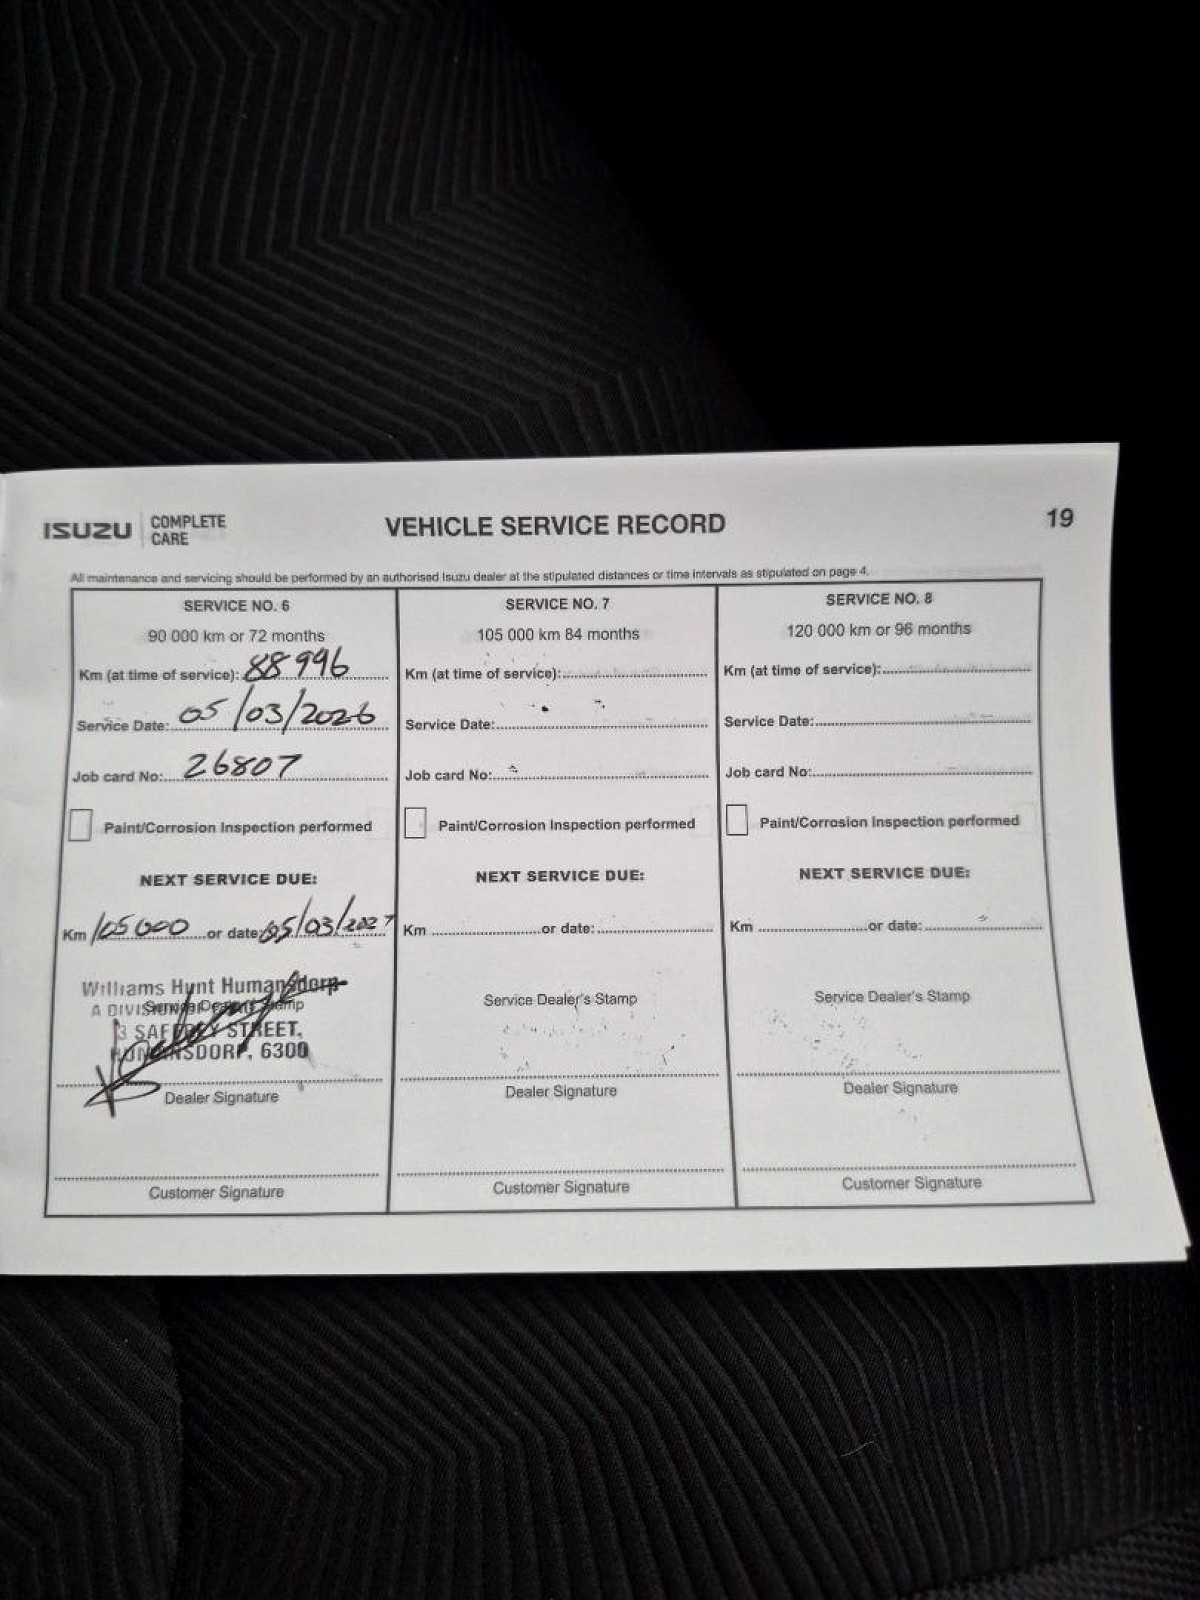 ISUZU COMPLETE CARE
VEHICLE SERVICE RECORD
19
All maintenance and servicing should be performed by an authorised Isuzu dealer at the stipulated distances or time intervals as stipulated on page 4.
SERVICE NO. 6
90 000 km or 72 months
Km (at time of service): 88996
Service Date: 05/03/2026
Job card No: 26807
Paint/Corrosion Inspection performed
NEXT SERVICE DUE:
Km 105000 or date: 05/03/2027
Williams Hunt Humansdorp
A DIVISION OF
Service Dealer's Stamp
3 SAFFREY STREET,
HUMANSDORP, 6300
Dealer Signature
Customer Signature
SERVICE NO. 7
105 000 km 84 months
Km (at time of service):
Service Date:
Job card No:
Paint/Corrosion Inspection performed
NEXT SERVICE DUE:
Km or date:
Service Dealer's Stamp
Dealer Signature
Customer Signature
SERVICE NO. 8
120 000 km or 96 months
Km (at time of service):
Service Date:
Job card No:
Paint/Corrosion Inspection performed
NEXT SERVICE DUE:
Km or date:
Service Dealer's Stamp
Dealer Signature
Customer Signature